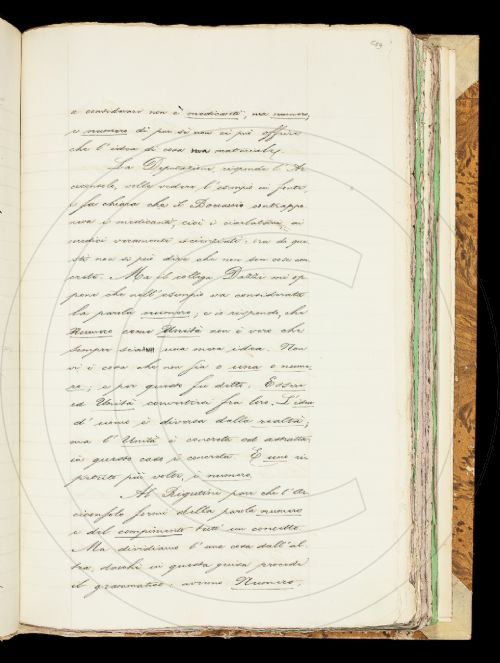 a considerare non è medicanti, ma numero,
e numero di per se non ci può offrire
che l'idea di cosa materiale.
La Deputazione risponde l'Ar
ciconsolo, volle vedere l'esempio in fonte,
e fu chiara che il Boccaccio contrappo
neva i medicanti, cioè i ciarlatani, ai
medici veramente scienziati: ora di que
sti non si può dire che non sien cose con
crete. Ma il collega Dazzi mi op
pone che nell'esempio va considerata
la parola numero; e io rispondo, che
Numero come Unità non è vero che
sempre sia una mera idea. Non
vi è cosa che non sia o una o nume
ro; e per questo fu detto: Essere
ed Unità convertirsi fra loro. L'idea
d'uomo è diversa dalla realtà;
ma l'Unità è concreta ed astratta,
in questo caso è concreta. E uno ri
petuto più volte, è numero.
Al Rigutini pare che l'Ar
ciconsolo formi della parola numero
e del compimento tutt'un concetto.
Ma dividiamo l'una cosa dall'al
tra, dacchè in questa guisa procede
il grammatico: avremo Numero,